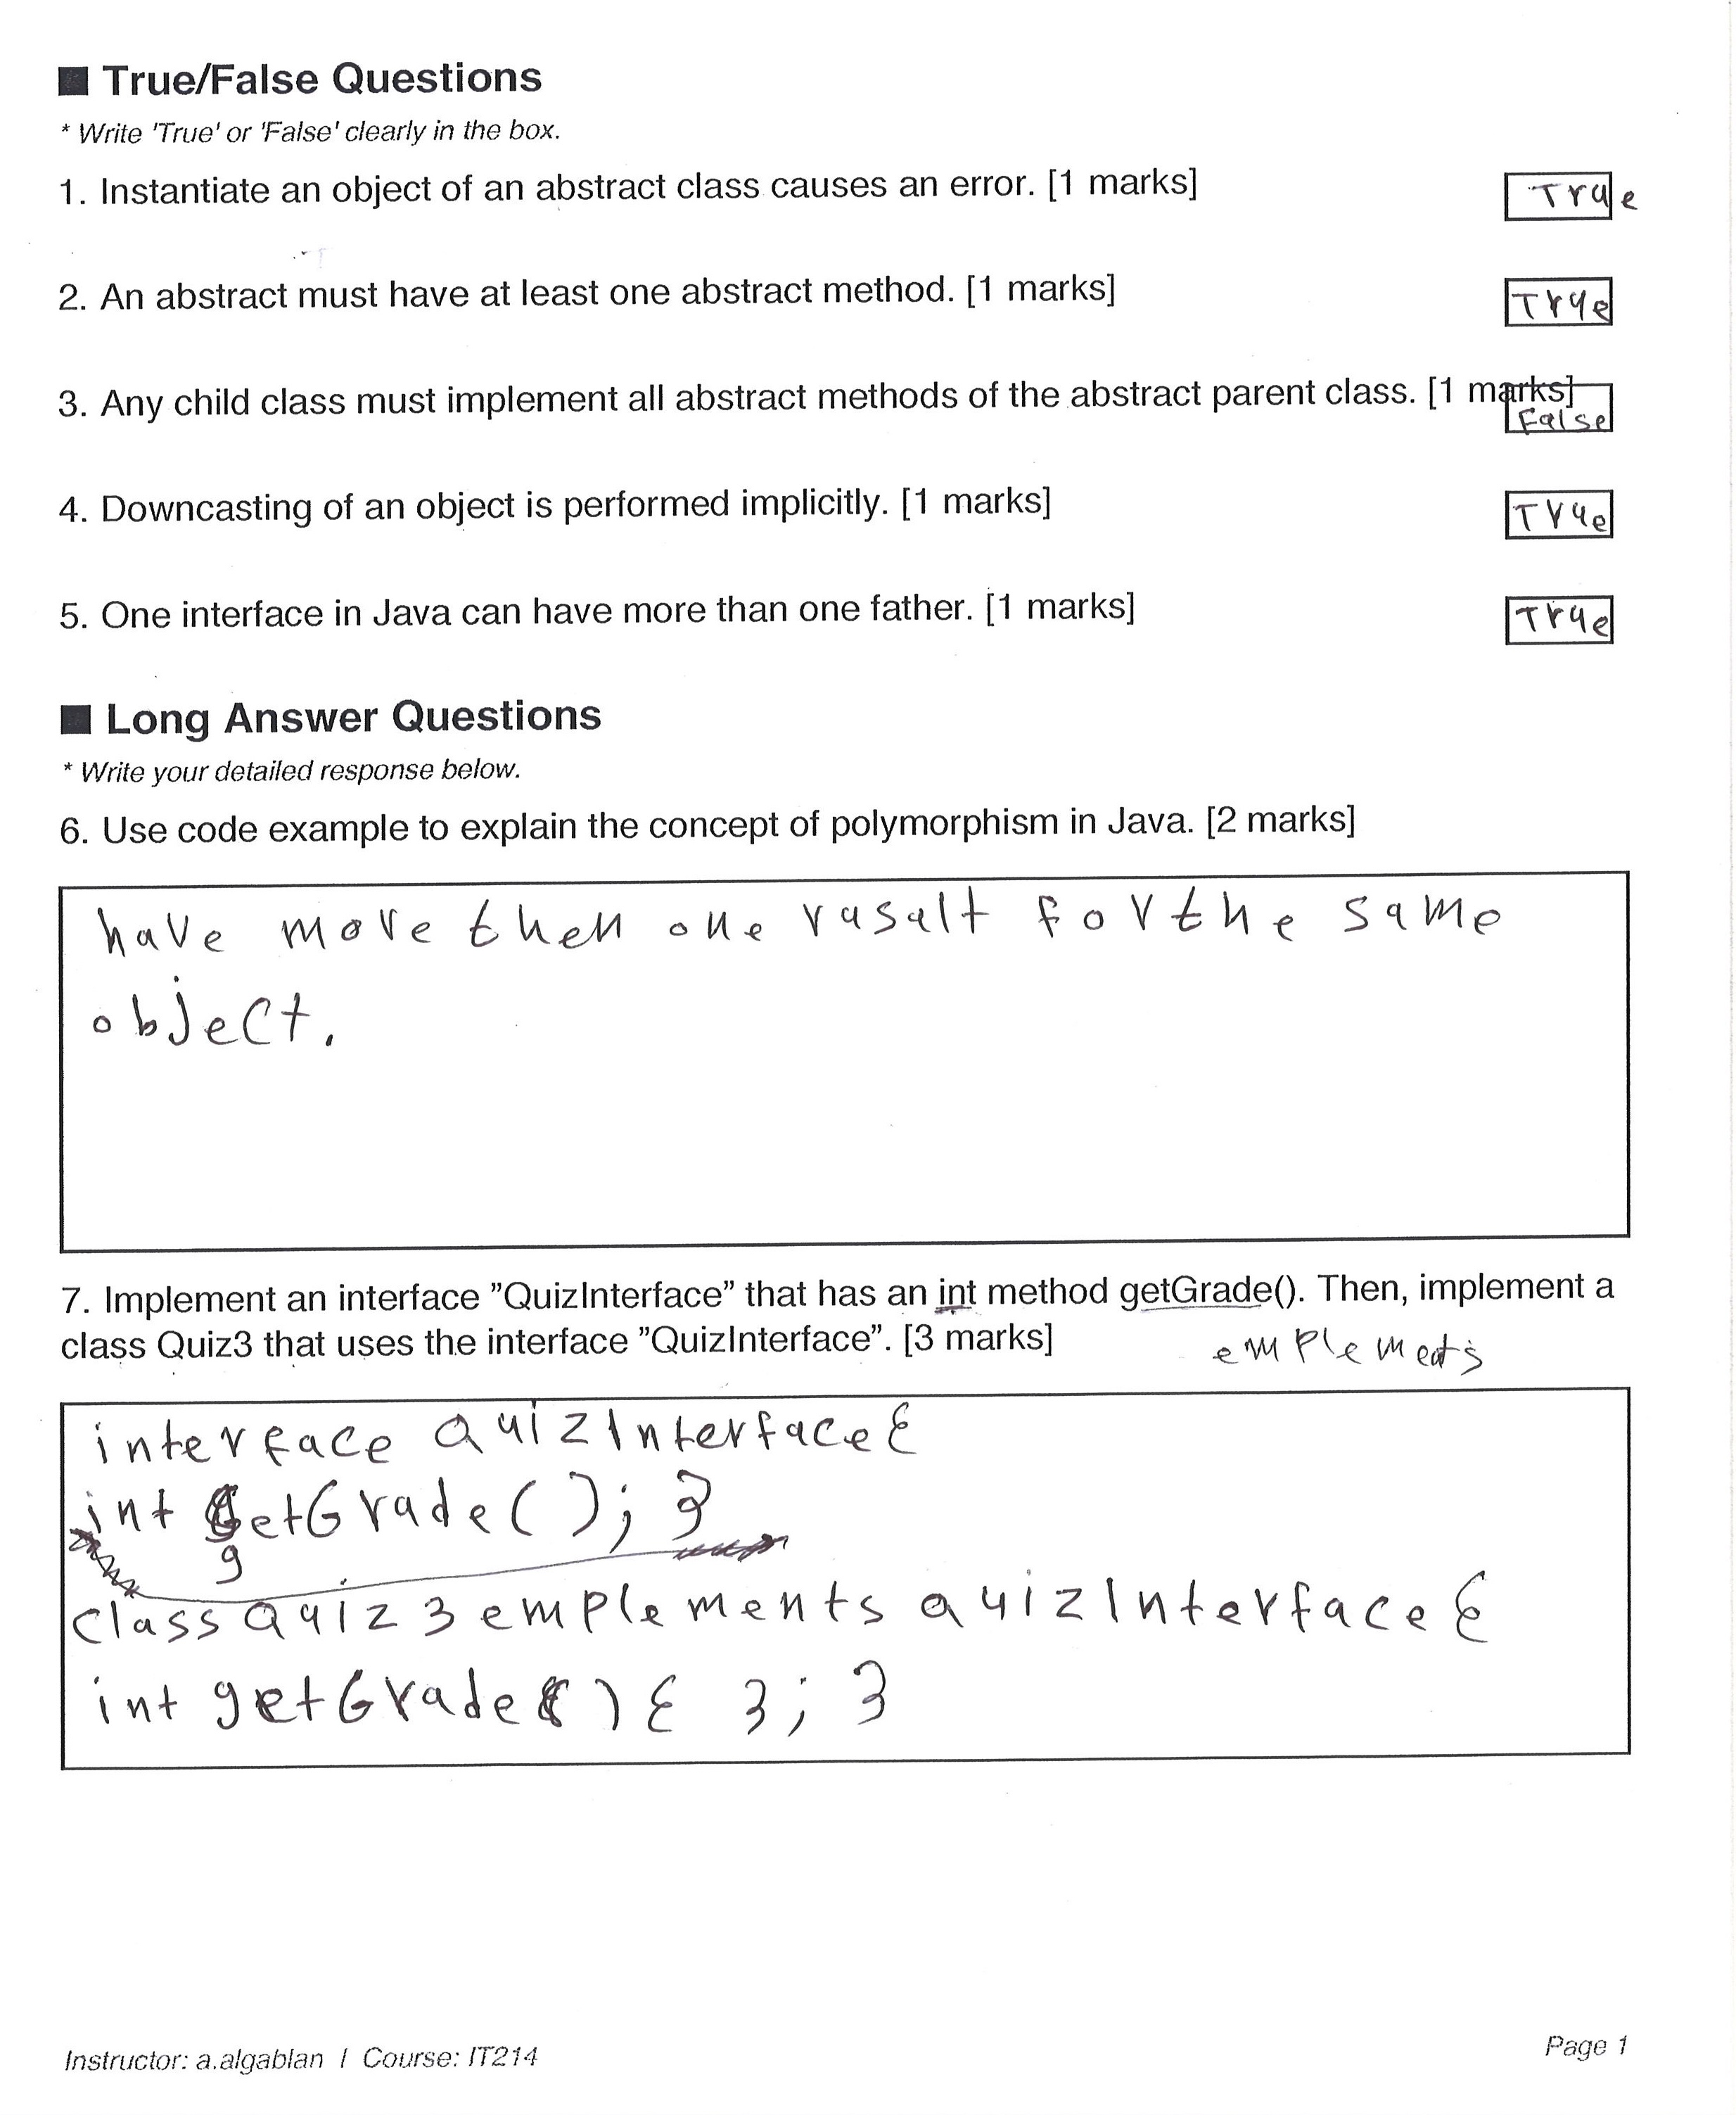 ■ True/False Questions
* Write 'True' or 'False' clearly in the box.
1. Instantiate an object of an abstract class causes an error. [1 marks] True
2. An abstract must have at least one abstract method. [1 marks] True
3. Any child class must implement all abstract methods of the abstract parent class. [1 marks] False
4. Downcasting of an object is performed implicitly. [1 marks] True
5. One interface in Java can have more than one father. [1 marks] True
■ Long Answer Questions
* Write your detailed response below.
6. Use code example to explain the concept of polymorphism in Java. [2 marks]
have more then one rusalt for the same
object.
7. Implement an interface ”QuizInterface” that has an int method getGrade(). Then, implement a
class Quiz3 that uses the interface ”QuizInterface”. [3 marks]
emplements
interface QuizInterface{
int getGrade(); }
g
class Quiz3 emplements quizInterface{
int getGrade() { }; }
Instructor: a.algablan / Course: IT214
Page 1